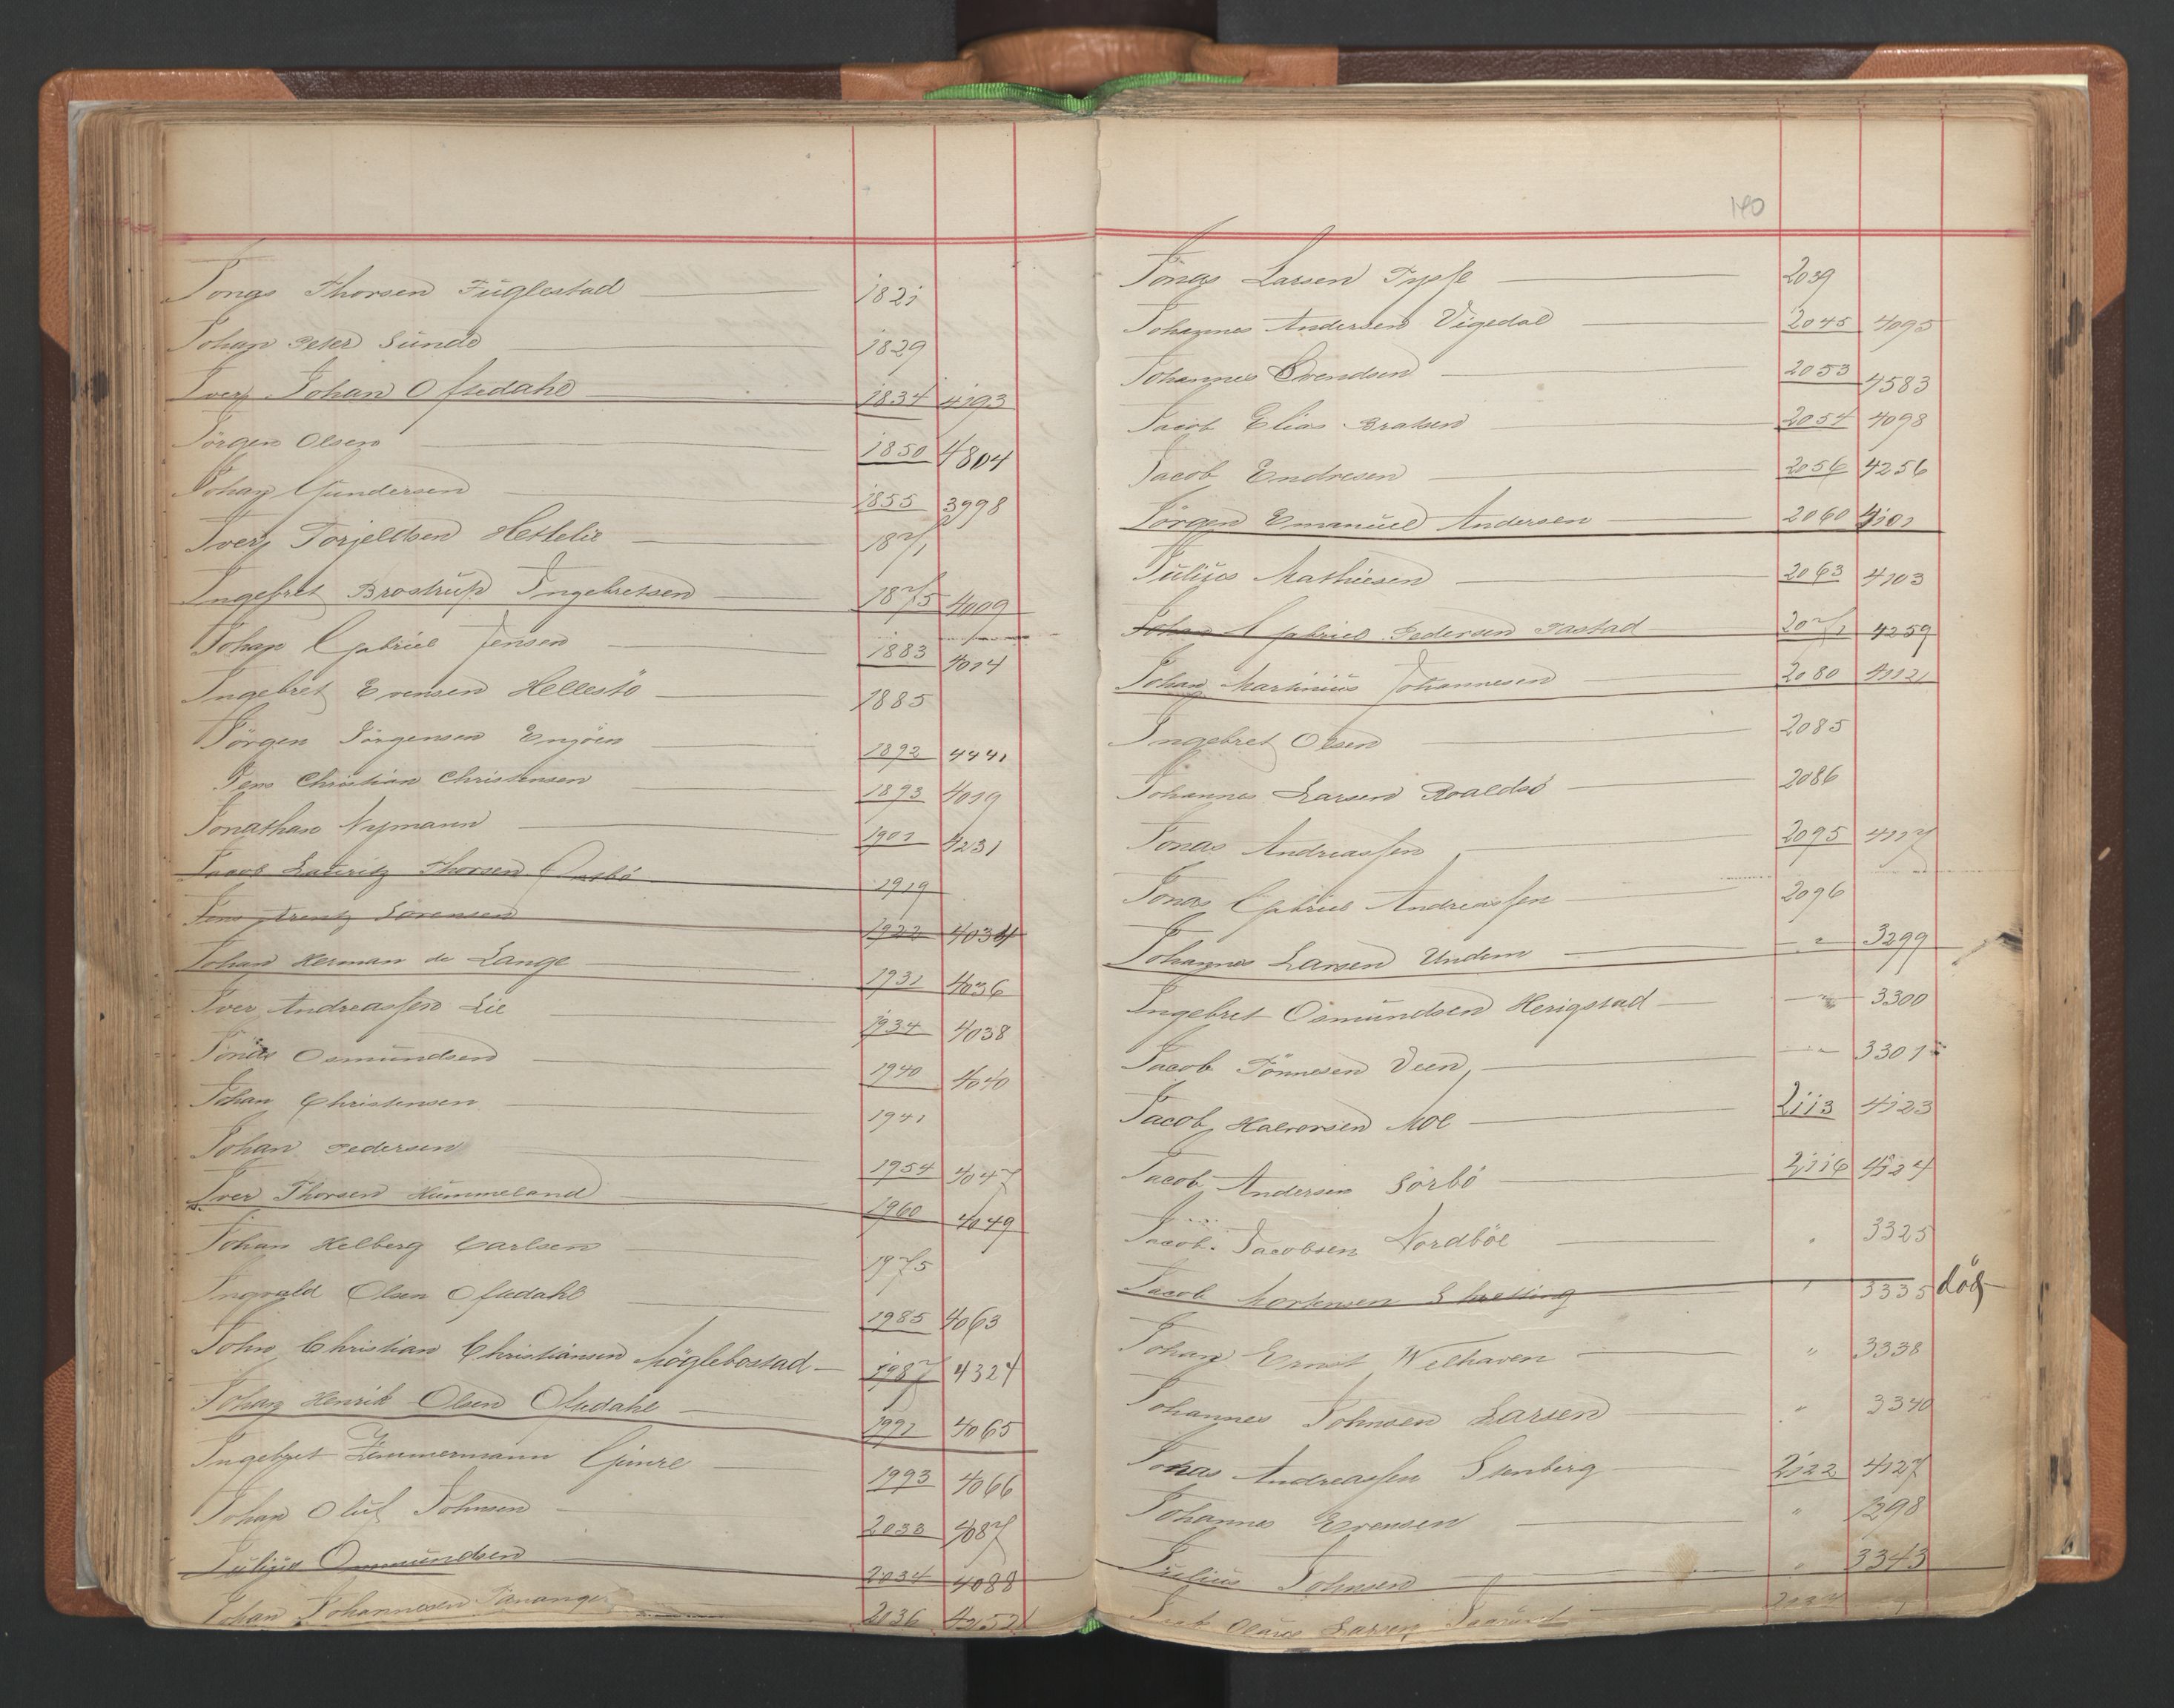 Jonas Thorsen Fuglestad 1821
Johan Peter Sunde 1829
Iver Johan Ofsedahl 1834 4193
Jörgen Olsen 1850 4804
Johan Gundersen 1855 3998
Iver Torjeldsen Hettelie 1871
Ingebret Brostrup Ingebretsen 1875 4009
Johan Gabriel Jensen 1883 4014
Ingebret Evensen Hellestö 1885
Jörgen Jörgensen Engöen 1892 4441
Jens Christian Christensen 1893 4019
Jonathan Nymann 1901 4231
Jacob Lauritz Thorsen 1919
Jens Arentz Sörensen 1922 4034
Johan Herman de Lange 1931 4036
Iver Andreassen Lie 1934 4038
Jonas Osmundsen 1940 4040
Johan Christensen 1941
Johan Pedersen 1954 4047
Iver Thorsen Hummeland 1960 4049
Johan Helberg Carlsen 1975
Ingvald Olsen Ofsedahl 1985 4063
John Christian Christiansen Möglebostad 1987 4324
Johan Henrik Olsen Ofsedahl 1991 4065
Ingebret Zimmermann Gimre 1993 4066
Johan Oluf Johnsen 2033 4087
Julius Osmundsen 2034 4088
Johan Johannesen 2036
140
Jonas Larsen 2039
Johannes Andersen Vigedal 2045 4095
Johannes Svendsen 2053 4583
Jacob Elias Bratsen 2054 4098
Jacob Endresen 2056 4256
Jörgen Emanuel Andersen 2060 4101
Julius Mathiesen 2063 4103
Johan Gabriel Pedersen Tastad 2071 4259
Johan Martinius Johannesen 2080 41121
Ingebret Olsen 2085
Johannes Larsen Roaldsö 2086
Jonas Andreassen 2095 4117
Jonas Gabriel Andreassen 2096
Johannes Larsen Undem " 3299
Ingebret Osmundsen Herigstad " 3300
Jacob Tönnesen Veen " 3301
Jacob Halvorsen Moe 2113 4123
Jacob Andersen Sörbö 2116 4124
Jacob Jacobsen Nordböe " 3325
Jacob Mortensen Skretting " 3335 död
Johan Ernst Welhaven " 3338
Johannes Johnsen Larsen " 3340
Jonas Andreassen Stenberg 2122 4127
Johannes Evensen " 1298
Julius Johnsen " 3343
Jacob Olaus Larsen